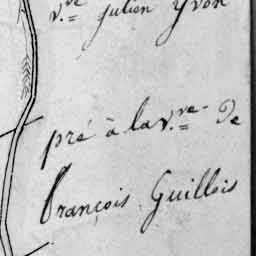 v.ve julien Yvon
pré à la v.ve De
François Guillois